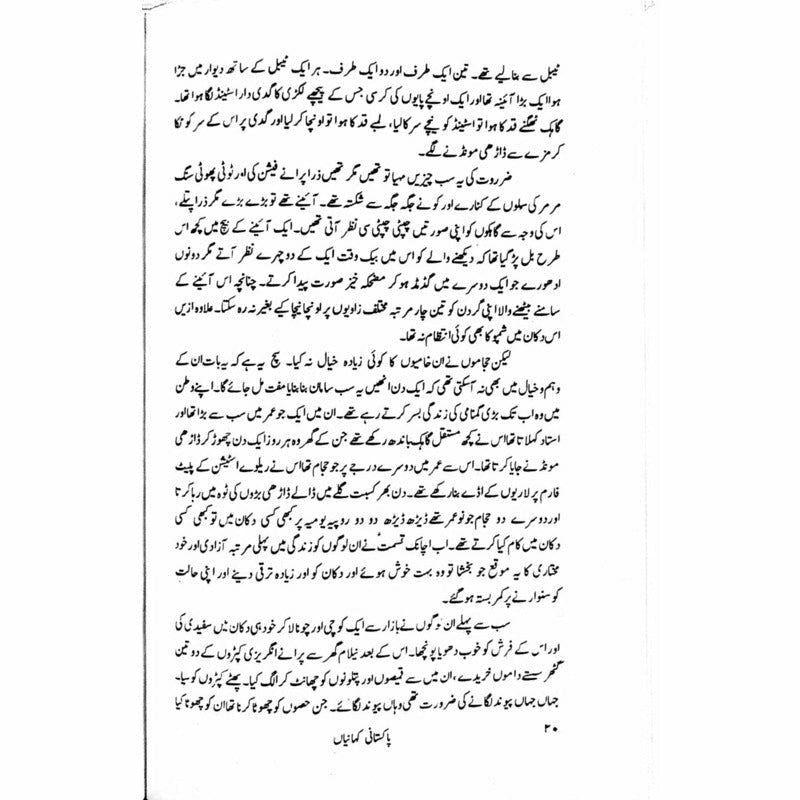 ٹیبل سے بنا لیے تھے۔ تین ایک طرف اور دو ایک طرف۔ ہر ایک ٹیبل کے ساتھ دیوار میں جڑا
ہوا ایک بڑا آئینہ تھا اور ایک اونچے پایوں کی کرسی جس کے پیچھے لکڑی کا گدی دار اسٹینڈ لگا ہوا تھا۔
گاہک ٹھگنے قد کا ہوا تو اسٹینڈ کو نیچے سرکا لیا، لمبے قد کا ہوا تو اونچا کر لیا اور گدی پر اس کے سر کو ٹکا
کر مزے سے ڈاڑھی مونڈنے لگے۔
ضرورت کی یہ سب چیزیں مہیا تو تھیں مگر تھیں ذرا پرانے فیشن کی اور ٹوٹی پھوٹی سنگ
مرمر کی سلوں کے کنارے اور کونے جگہ جگہ سے شکستہ تھے۔ آئینے تھے تو بڑے بڑے مگر ذرا پتلے،
اس کی وجہ سے گاہکوں کو اپنی صورتیں چپٹی چپٹی سی نظر آتی تھیں۔ ایک آئینے کے بیچ میں کچھ اس
طرح بل پڑ گیا تھا کہ دیکھنے والے کو اس میں بیک وقت ایک کے دو چہرے نظر آتے مگر دونوں
ادھورے جو ایک دوسرے میں گڈمڈ ہو کر مضحکہ خیز صورت پیدا کرتے۔ چنانچہ اس آئینے کے
سامنے بیٹھنے والا اپنی گردن کو تین چار مرتبہ مختلف زاویوں پر اونچا نیچا کیے بغیر نہ رہ سکتا۔ علاوہ ازیں
اس دکان میں شمپو کا بھی کوئی انتظام نہ تھا۔
لیکن حجاموں نے ان خامیوں کا کوئی زیادہ خیال نہ کیا۔ سچ یہ ہے کہ یہ بات ان کے
وہم و خیال میں بھی نہ آ سکتی تھی کہ ایک دن انھیں یہ سب سامان بنا بنایا مفت مل جائے گا۔ اپنے وطن
میں وہ اب تک بڑی گمنامی کی زندگی بسر کرتے رہے تھے۔ ان میں ایک جو عمر میں سب سے بڑا تھا اور
استاد کہلاتا تھا اس نے کچھ مستقل گاہک باندھ رکھے تھے جن کے گھر وہ ہر روز ایک دن چھوڑ کر ڈاڑھی
مونڈنے جایا کرتا تھا۔ اس سے عمر میں دوسرے درجے پر جو حجام تھا اس نے ریلوے اسٹیشن کے پلیٹ
فارم پر لاریوں کے اڈے بنا رکھے تھے۔ دن بھر کسبت گلے میں ڈالے ڈاڑھی بڑوں کی ٹوہ میں رہا کرتا
اور دوسرے دو حجام جو نوعمر تھے ڈیڑھ ڈیڑھ دو دو روپیہ یومیہ پر کبھی کسی دکان میں تو کبھی کسی
دکان میں کام کیا کرتے تھے۔ اب اچانک قسمت نے ان لوگوں کو زندگی میں پہلی مرتبہ آزادی اور خود
مختاری کا یہ موقع جو بخشا تو وہ بہت خوش ہوئے اور دکان کو اور زیادہ ترقی دینے اور اپنی حالت
کو سنوارنے پر کمر بستہ ہو گئے۔
سب سے پہلے ان لوگوں نے بازار سے ایک کوچی اور چونا لا کر خود ہی دکان میں سفیدی کی
اور اس کے فرش کو خوب دھویا پونچھا۔ اس کے بعد نیلام گھر سے پرانے انگریزی کپڑوں کے دو تین
گٹھر سستے داموں خریدے، ان میں سے قمیصوں اور پتلونوں کو چھانٹ کر الگ کیا۔ پھٹے کپڑوں کو سیا۔
جہاں جہاں پیوند لگانے کی ضرورت تھی وہاں پیوند لگائے۔ جن حصوں کو چھوٹا کرنا تھا ان کو چھوٹا کیا
۲۰
پاکستانی کہانیاں